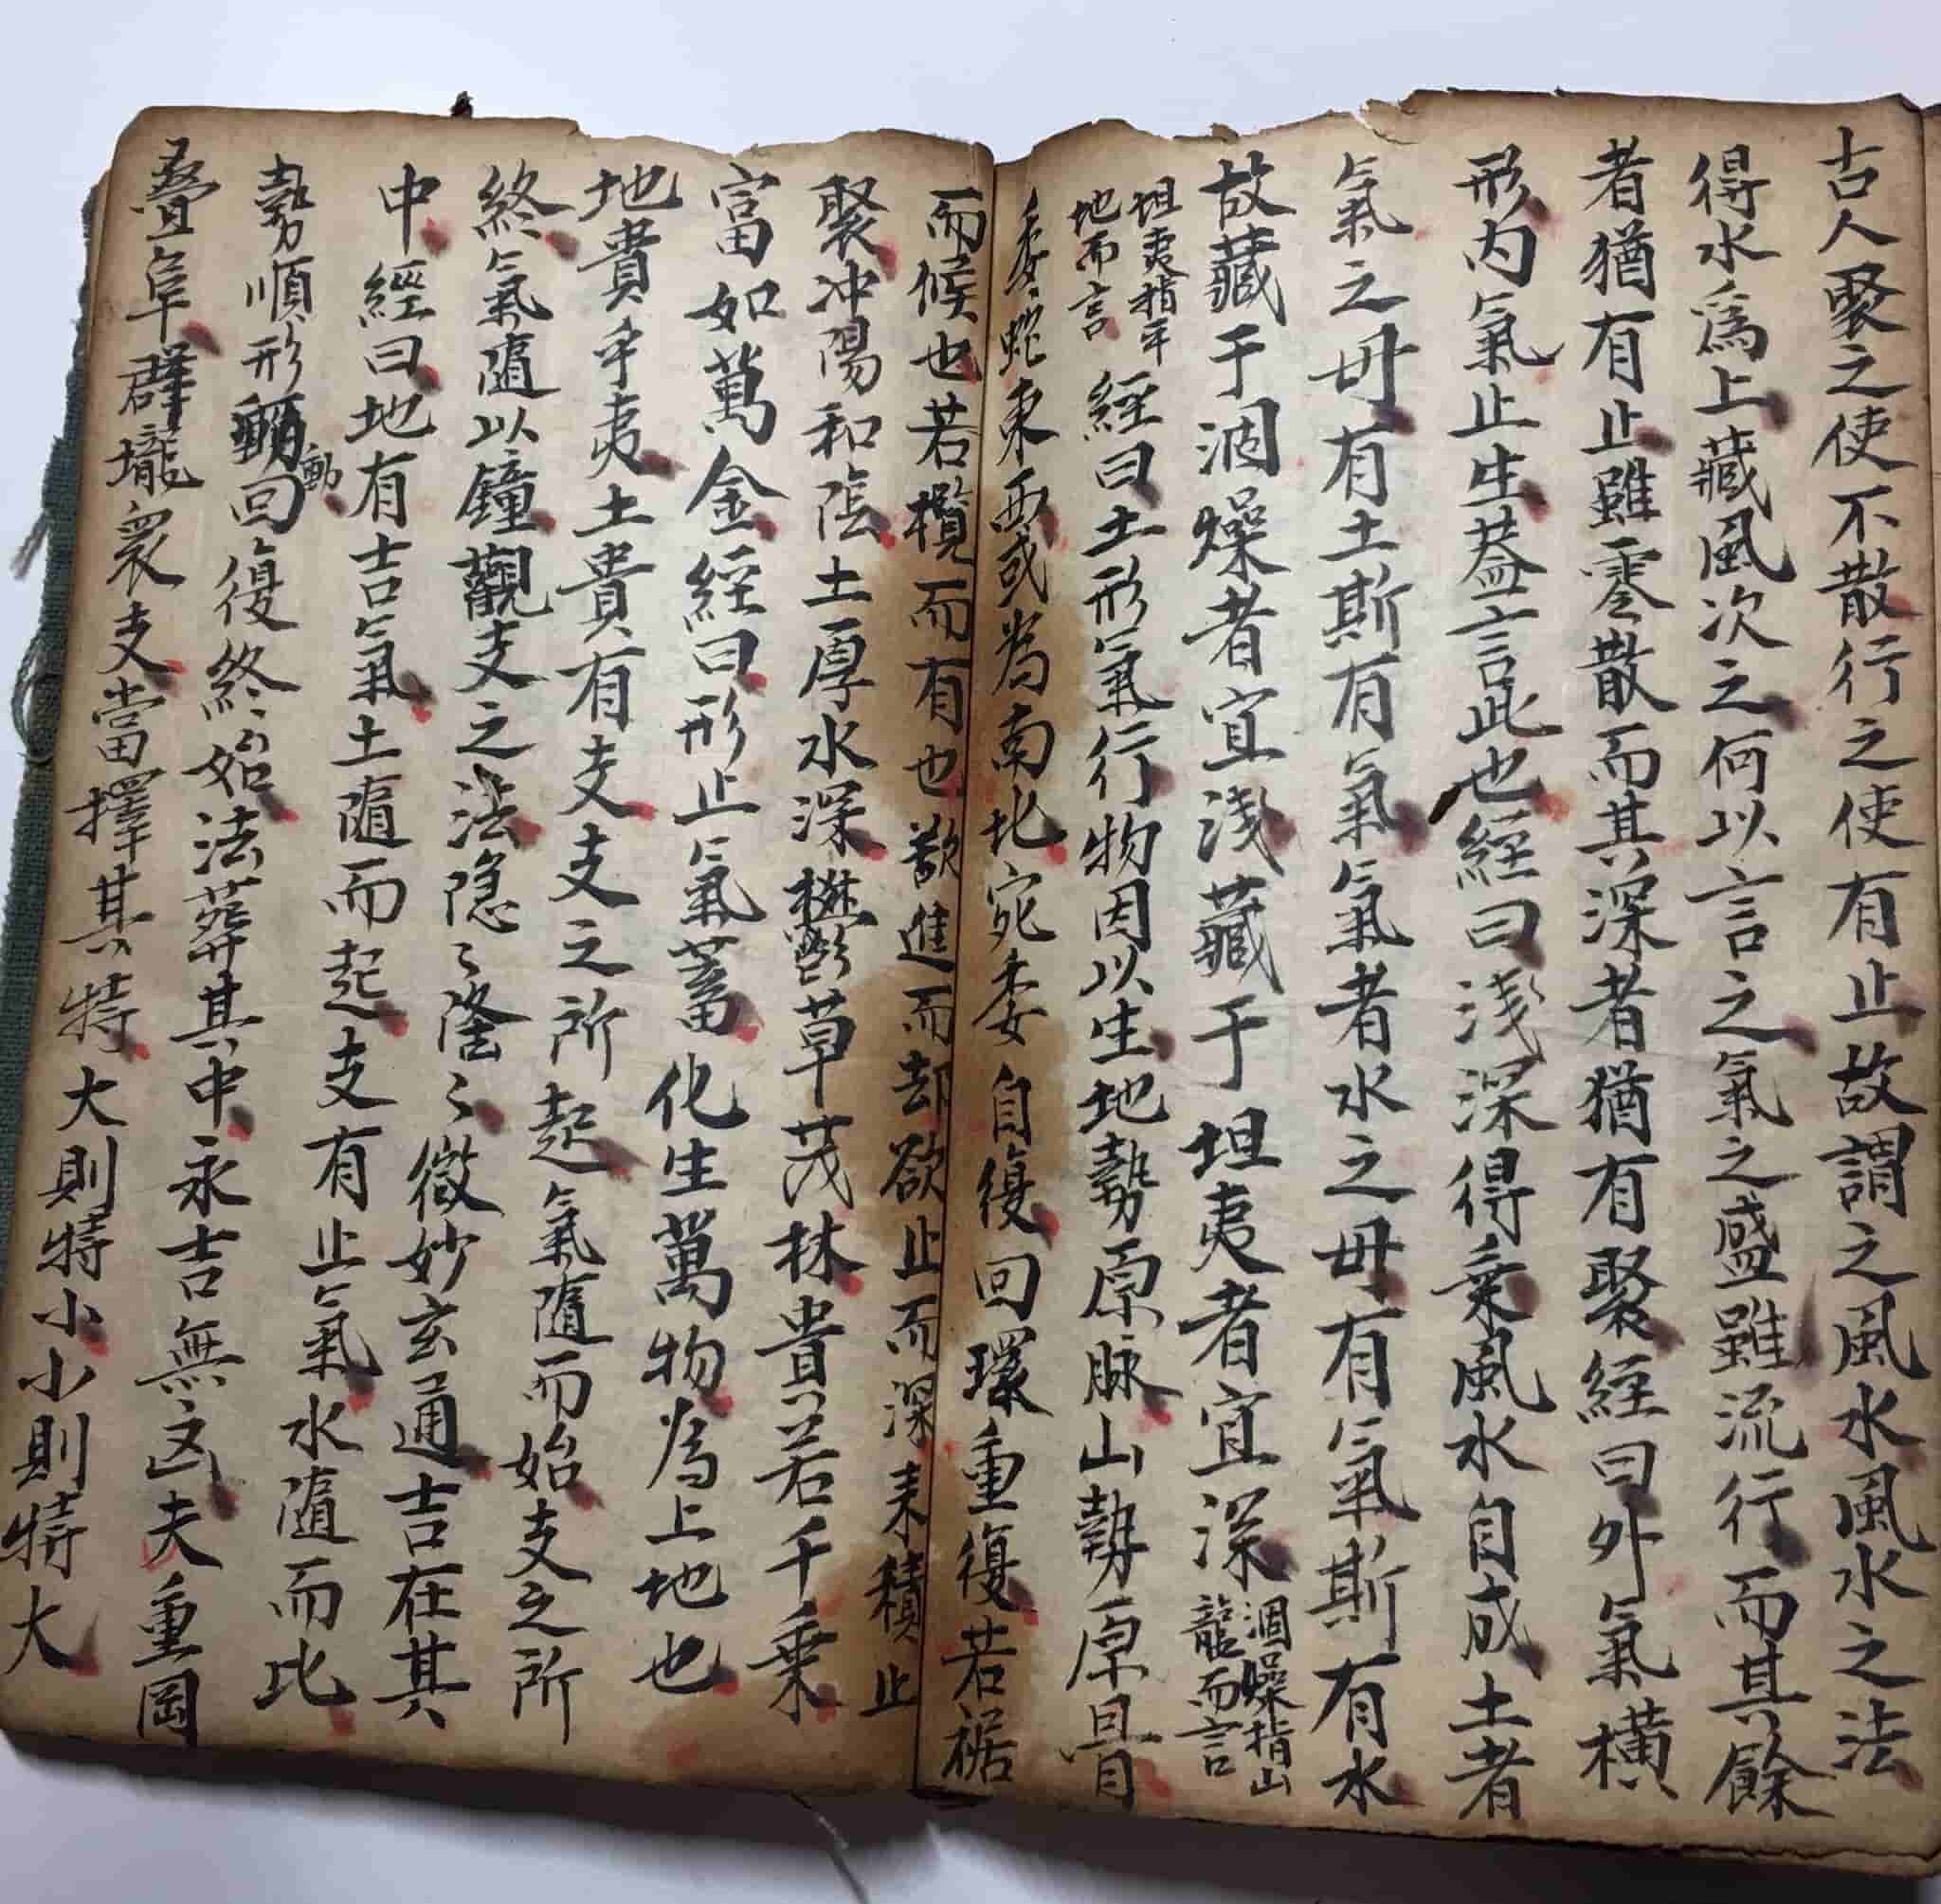 古人聚之使不散行之使有止故謂之風水風水之法
得水爲上藏風次之何以言之氣之盛雖流行而其餘
者猶有止雖零散而其深者猶有聚經曰外氣橫
形内氣止生葢言此也經曰淺深得乗風水自成土者
氣之毋有土斯有氣氣者水之毋有氣斯有水
故藏于涸燥者宜淺藏于坦夷者宜深
涸燥指山
龍而言
坦夷指平
地而言
經曰土形氣行物因以生地勢原脉山勢原骨
委蛇東西或為南北宛委自復回環重復若裾
而候也若攬而有也欲進而却欲止而深来積止
聚冲陽和陰土厚水深欝草茂林貴若千乗
富如萬金經曰形止氣蓄化生萬物為上地也
地貴乎夷土貴有支支之所起氣隨而始支之所
終氣隨以鐘觀支之法隐〻隆〻微妙玄通吉在其
中經曰地有吉氣土隨而起支有止氣水隨而比
勢順形動回復終始法葬其中永吉無凶夫重岡
叠阜群壠衆支當擇其特大則特小小則特大